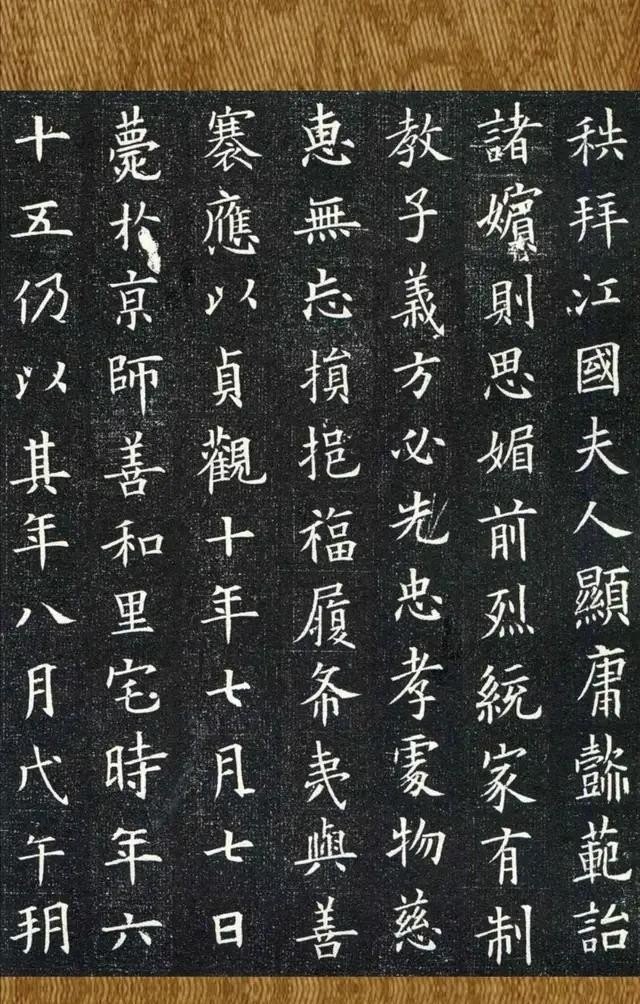 秩拜江國夫人顯庸懿範詒
諸嬪則思媚前烈統家有制
教子義方必先忠孝處物慈
惠無忘損挹福履希夷與善
褰應以貞觀十年七月七日
薨於京師善和里宅時年六
十五仍以其年八月戊午朔